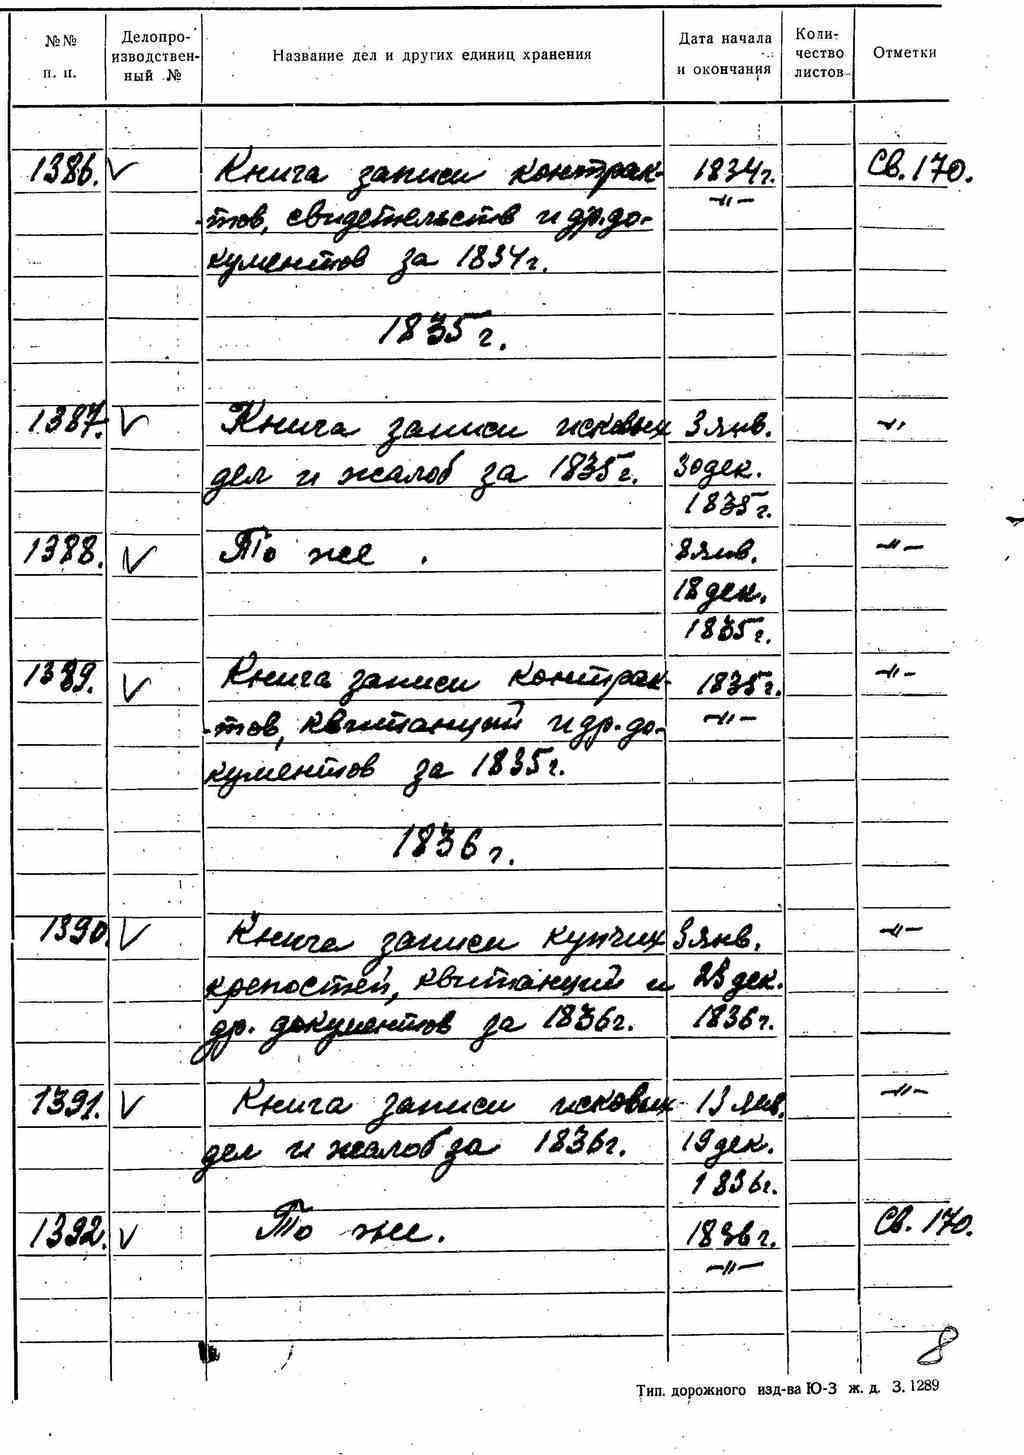 №№ п. п. Делопро- изводствен- ный № Название дел и других единиц хранения Дата начала и окончания Коли- чество листов Отметки
1386. V Книга записи контрак- 1834г. Св. 170.
-тов, свидетельств и др. до- —"—
кументов за 1834г.
1835г.
1387. V Книга записи исковых 3 янв. —"—
дел и жалоб за 1835г. 30 дек.
1835г.
1388. V То же . 8 янв. —"—
18 дек.
1835г.
1389. V Книга записи контрак- 1835г. —"—
-тов, квитанций и др. до- —"—
кументов за 1835г.
1836г.
1390. V Книга записи купчих 3 янв. —"—
крепостей, квитанций и 23 дек.
др. документов за 1836г. 1836г.
1391. V Книга записи исковых 13 янв. —"—
дел и жалоб за 1836г. 19 дек.
1836г.
1392. V То же. 1836г. Св. 170.
—"—
8
Тип. дорожного изд-ва Ю-З ж. д. З. 1289